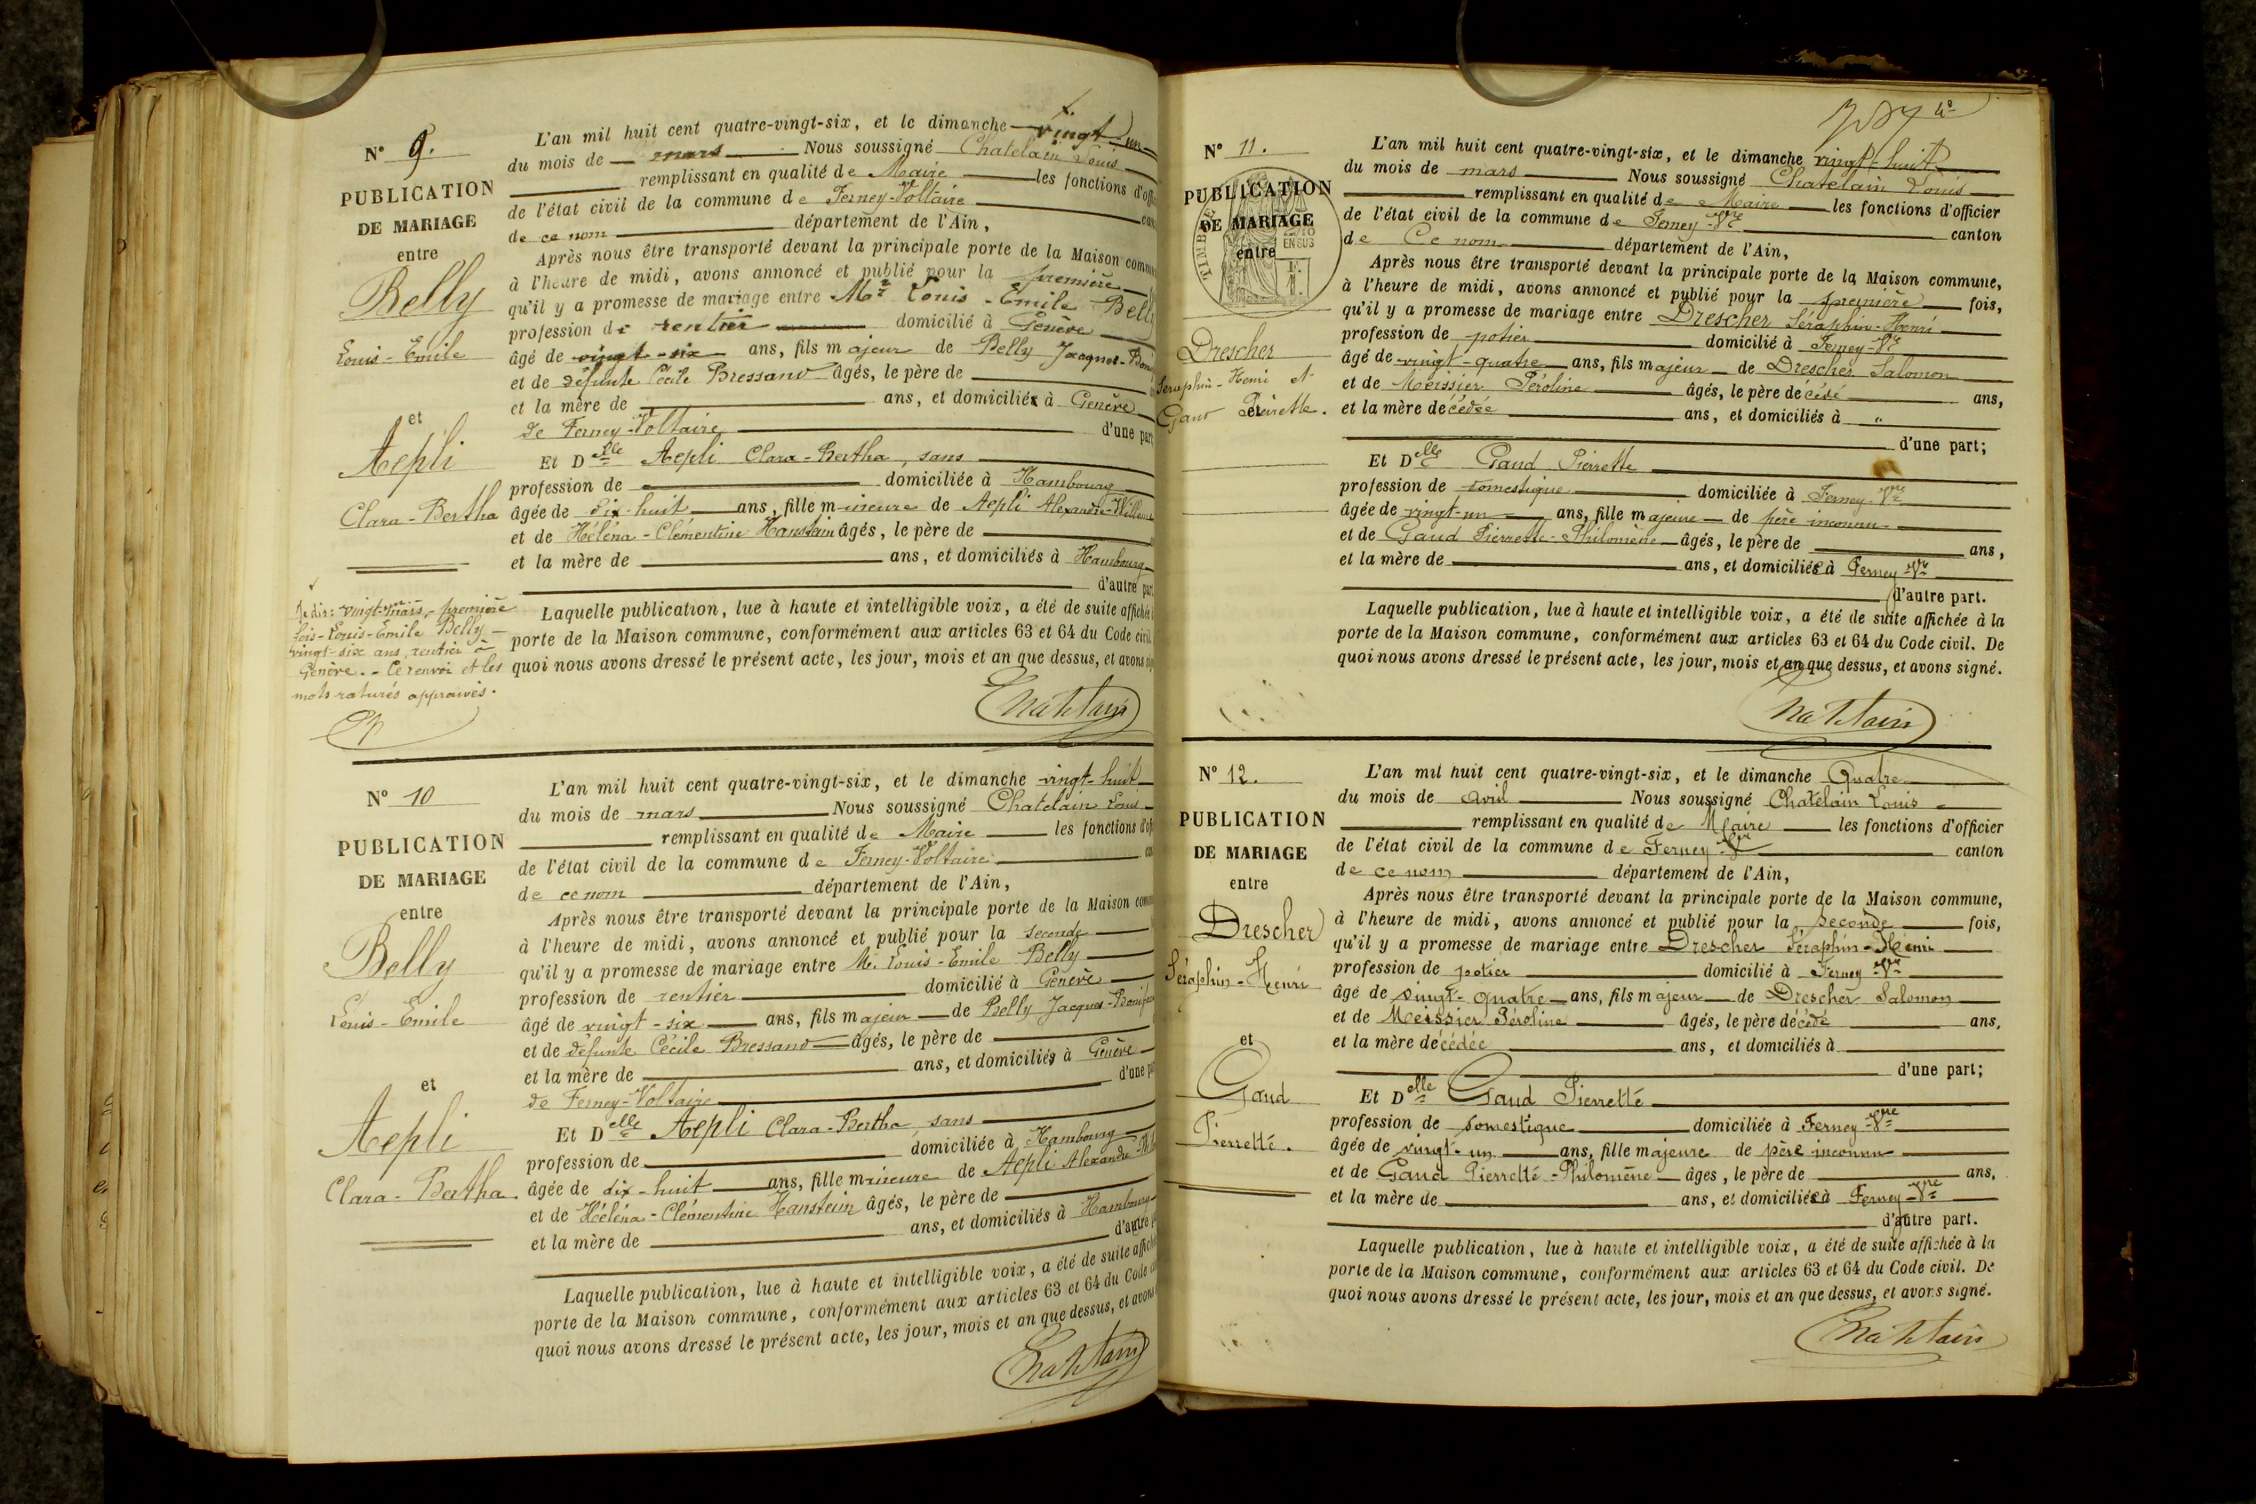 N° 9.
PUBLICATION
DE MARIAGE
entre
Belly
Louis-Emile
et
Aepli
Clara-Bertha
Je dis: vingt-mars, première
fois-Louis-Emile Belly-
vingt-six ans, rentier à
Genève.- Ce renvoi et les
mots raturés approuvés.
L'an mil huit cent quatre-vingt-six, et le dimanche vingt-un
du mois de mars Nous soussigné Chatelain Louis
remplissant en qualité de Maire les fonctions d'offi
de l'état civil de la commune de Ferney-Voltaire can
de ce nom département de l'Ain,
Après nous être transporté devant la principale porte de la Maison commu
à l'heure de midi, avons annoncé et publié pour la première
qu'il y a promesse de mariage entre Mr Louis-Emile Belly
profession de rentier domicilié à Genève
âgé de vingt-six ans, fils majeur de Belly Jacques-Boni
et de défunte Cécile Bressand âgés, le père de
et la mère de ans, et domiciliés à Genève
de Ferney-Voltaire d'une part
Et Delle Aepli Clara-Bertha, sans
profession de domiciliée à Hambourg
âgée de dix-huit ans, fille mineure de Aepli Alexandre-
et de Héléna-Clémentine Hanstein âgés, le père de
et la mère de ans, et domiciliés à Hambourg
d'autre part
Laquelle publication, lue à haute et intelligible voix, a été de suite affichée
porte de la Maison commune, conformément aux articles 63 et 64 du Code civil
quoi nous avons dressé le présent acte, les jour, mois et an que dessus, et avons
Chatelain
N° 10
PUBLICATION
DE MARIAGE
entre
Belly
Louis-Emile
et
Aepli
Clara-Bertha.
L'an mil huit cent quatre-vingt-six, et le dimanche vingt-huit
du mois de mars Nous soussigné Chatelain Louis
remplissant en qualité de Maire les fonctions d'off
de l'état civil de la commune de Ferney-Voltaire ca
de ce nom département de l'Ain,
Après nous être transporté devant la principale porte de la Maison comm
à l'heure de midi, avons annoncé et publié pour la seconde
qu'il y a promesse de mariage entre M. Louis-Emile Belly
profession de rentier domicilié à Genève
âgé de vingt-six ans, fils majeur de Belly Jacques-Bonif
et de défunte Cécile Bressand âgés, le père de
et la mère de ans, et domiciliés à Genève
de Ferney-Voltaire d'une pa
Et Delle Aepli Clara-Bertha, sans
profession de domiciliée à Hambourg
âgée de dix-huit ans, fille mineure de Aepli Alexandre
et de Héléna-Clémentine Hanstein âgés, le père de
et la mère de ans, et domiciliés à Hambourg
d'autre p
Laquelle publication, lue à haute et intelligible voix, a été de suite affich
porte de la Maison commune, conformément aux articles 63 et 64 du Code c
quoi nous avons dressé le présent acte, les jour, mois et an que dessus, et avons
Chatelain
N° 11.
PUBLICATION
DE MARIAGE
entre
TIMBRE
EN SUS
Drescher
Séraphin-Henri et
Gaud Pierrette.
et
L'an mil huit cent quatre-vingt-six, et le dimanche vingt-huit
du mois de mars Nous soussigné Chatelain Louis
remplissant en qualité de Maire les fonctions d'officier
de l'état civil de la commune de Ferney-Vre canton
de Ce nom département de l'Ain,
Après nous être transporté devant la principale porte de la Maison commune,
à l'heure de midi, avons annoncé et publié pour la première fois,
qu'il y a promesse de mariage entre Drescher Séraphin-Henri
profession de potier domicilié à Ferney-Vre
âgé de vingt-quatre ans, fils majeur de Drescher Salomon
et de Meissier Péroline âgés, le père décédé ans,
et la mère décédée ans, et domiciliés à "
d'une part;
Et Delle Gaud Pierrette
profession de domestique domiciliée à Ferney-Vre
âgée de vingt-un ans, fille majeure de père inconnu
et de Gaud Pierrette-Philomène âgés, le père de ans,
et la mère de ans, et domiciliée à Ferney-Vre
d'autre part.
Laquelle publication, lue à haute et intelligible voix, a été de suite affichée à la
porte de la Maison commune, conformément aux articles 63 et 64 du Code civil. De
quoi nous avons dressé le présent acte, les jour, mois et an que dessus, et avons signé.
Chatelain
N° 12.
PUBLICATION
DE MARIAGE
entre
Drescher
Séraphin-Henri
et
Gaud
Pierrette.
L'an mil huit cent quatre-vingt-six, et le dimanche Quatre
du mois de avril Nous soussigné Chatelain Louis
remplissant en qualité de Maire les fonctions d'officier
de l'état civil de la commune de Ferney-Vre canton
de ce nom département de l'Ain,
Après nous être transporté devant la principale porte de la Maison commune,
à l'heure de midi, avons annoncé et publié pour la seconde fois,
qu'il y a promesse de mariage entre Drescher Séraphin-Henri
profession de potier domicilié à Ferney-Vre
âgé de vingt-quatre ans, fils majeur de Drescher Salomon
et de Meissier Péroline âgés, le père décédé ans,
et la mère décédée ans, et domiciliés à
d'une part;
Et Delle Gaud Pierrette
profession de domestique domiciliée à Ferney-Vre
âgée de vingt-un ans, fille majeure de père inconnu
et de Gaud Pierrette-Philomène âgés, le père de ans,
et la mère de ans, et domiciliée à Ferney-Vre
d'autre part.
Laquelle publication, lue à haute et intelligible voix, a été de suite affichée à la
porte de la Maison commune, conformément aux articles 63 et 64 du Code civil. De
quoi nous avons dressé le présent acte, les jour, mois et an que dessus, et avons signé.
Chatelain